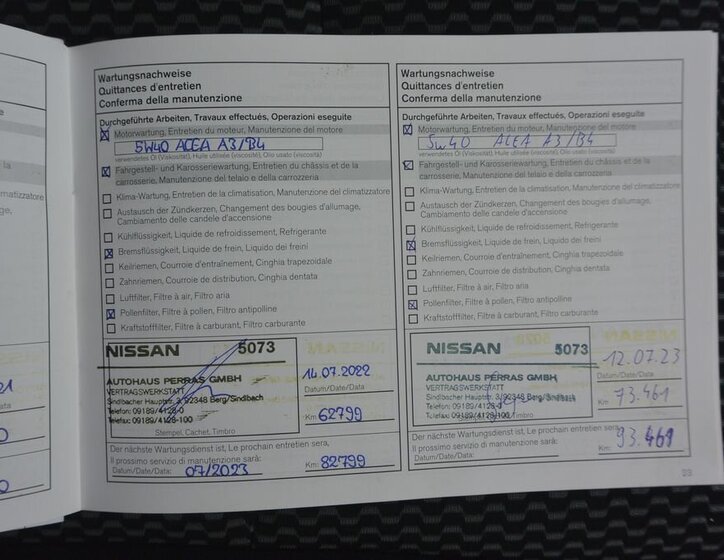 Wartungsnachweise
Quittances d'entretien
Conferma della manutenzione
Durchgeführte Arbeiten, Travaux effectués, Operazioni eseguite
Motorwartung, Entretien du moteur, Manutenzione del motore
5W40 ACEA A3/B4
verwendetes Öl (Viskosität), Huile utilisée (viscosité), Olio usato (viscosità)
Fahrgestell- und Karosseriewartung, Entretien du châssis et de la
carrosserie, Manutenzione del telaio e della carrozzeria
Klima-Wartung, Entretien de la climatisation, Manutenzione del climatizzatore
Austausch der Zündkerzen, Changement des bougies d'allumage,
Cambiamento delle candele d'accensione
Kühlflüssigkeit, Liquide de refroidissement, Refrigerante
Bremsflüssigkeit, Liquide de frein, Liquido dei freini
Keilriemen, Courroie d'entraînement, Cinghia trapezoidale
Zahnriemen, Courroie de distribution, Cinghia dentata
Luftfilter, Filtre à air, Filtro aria
Pollenfilter, Filtre à pollen, Filtro antipolline
Kraftstofffilter, Filtre à carburant, Filtro carburante
NISSAN 5073
AUTOHAUS PERRAS GMBH
VERTRAGSWERKSTATT
Sindlbacher Hauptstr. 3, 92348 Berg/Sindlbach
Telefon: 09189/4128-0
Telefax: 09189/4128-100
Stempel, Cachet, Timbro
14.07.2022
Datum/Date/Data:
Km: 62799
Der nächste Wartungsdienst ist, Le prochain entretien sera,
Il prossimo servizio di manutenzione sarà:
Datum/Date/Data: 07/2023
Km: 82799
Wartungsnachweise
Quittances d'entretien
Conferma della manutenzione
Durchgeführte Arbeiten, Travaux effectués, Operazioni eseguite
Motorwartung, Entretien du moteur, Manutenzione del motore
5W40 ACEA A3/B4
verwendetes Öl (Viskosität), Huile utilisée (viscosité), Olio usato (viscosità)
Fahrgestell- und Karosseriewartung, Entretien du châssis et de la
carrosserie, Manutenzione del telaio e della carrozzeria
Klima-Wartung, Entretien de la climatisation, Manutenzione del climatizzatore
Austausch der Zündkerzen, Changement des bougies d'allumage,
Cambiamento delle candele d'accensione
Kühlflüssigkeit, Liquide de refroidissement, Refrigerante
Bremsflüssigkeit, Liquide de frein, Liquido dei freini
Keilriemen, Courroie d'entraînement, Cinghia trapezoidale
Zahnriemen, Courroie de distribution, Cinghia dentata
Luftfilter, Filtre à air, Filtro aria
Pollenfilter, Filtre à pollen, Filtro antipolline
Kraftstofffilter, Filtre à carburant, Filtro carburante
NISSAN 5073
AUTOHAUS PERRAS GMBH
VERTRAGSWERKSTATT
Sindlbacher Hauptstr. 3, 92348 Berg/Sindlbach
Telefon: 09189/4128-0
Telefax: 09189/4128-100
Timbro
12.07.23
Datum/Date/Data:
Km: 73.461
Der nächste Wartungsdienst ist, Le prochain entretien sera,
Il prossimo servizio di manutenzione sarà:
Datum/Date/Data:
Km: 93.461